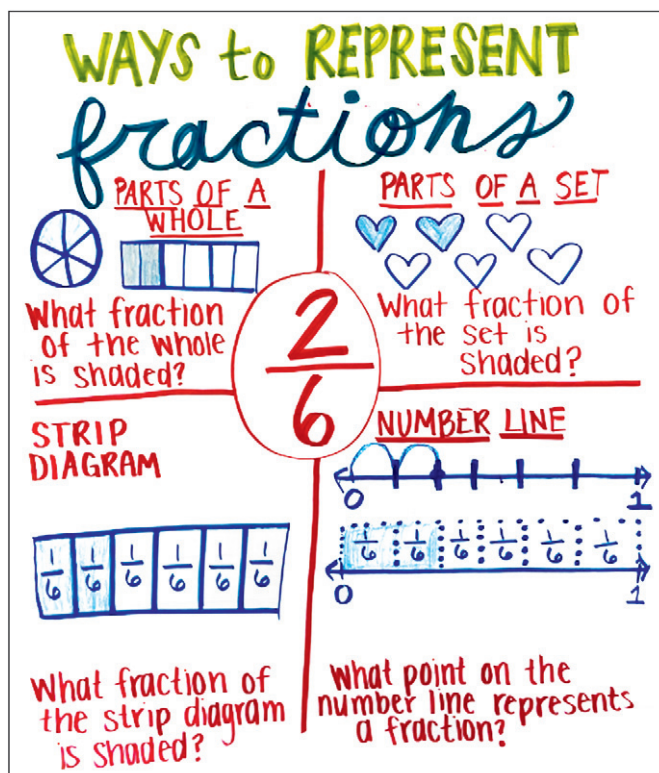 WAYS to REPRESENT
fractions
PARTS OF A
WHOLE
What fraction
of the whole
is shaded?
PARTS OF A SET
What fraction of
the set is
shaded?
2
6
STRIP
DIAGRAM
1 1 1 1 1 1
6 6 6 6 6 6
What fraction of
the strip diagram
is shaded?
NUMBER LINE
0 1
1 1 1 1 1 1
6 6 6 6 6 6
0 1
What point on the
number line represents
a fraction?